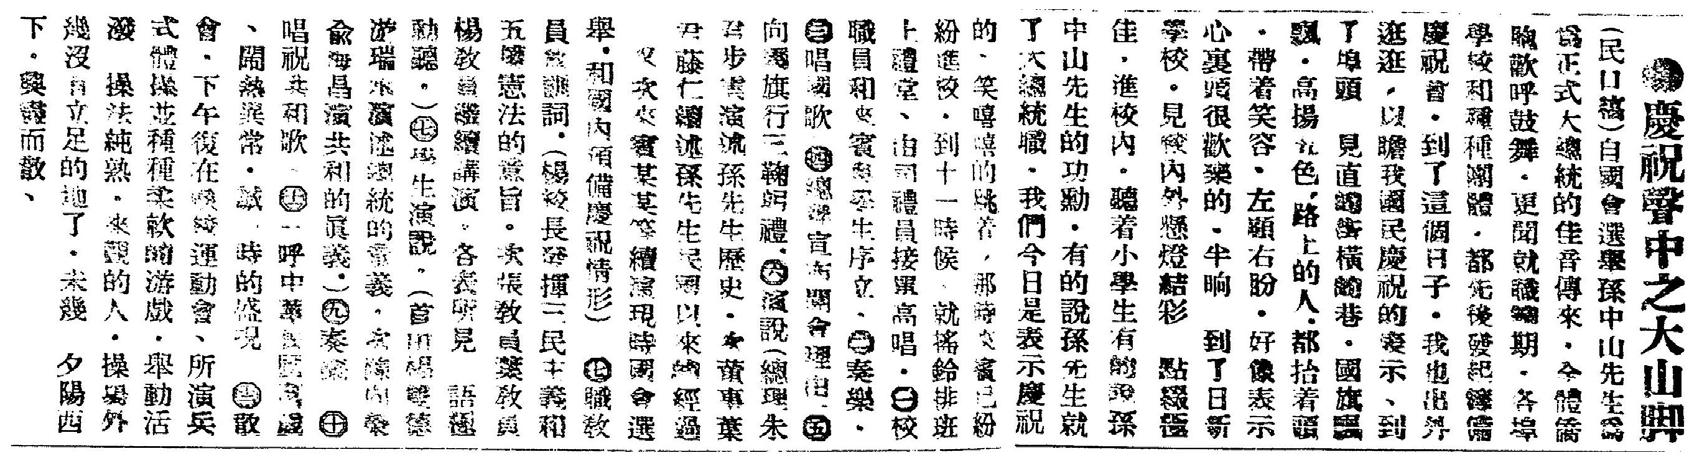 慶祝聲中之大山脚
(民口稿)自國會選舉孫中山先生爲
爲正式大總統的佳音傳來・全體僑
胞歡呼鼓舞・更聞就職期・各埠
學校和種種團體・都先後發起籌備
慶祝會・到了這個日子・我也出外
逛逛、以瞻我國民慶祝的表示、到
了埠頭 見直的街橫的巷・國旗飄
飄・高揚五色・路上的人・都抬着頭
・帶着笑容・左顧右盼・好像表示
心裏頭很歡樂的・半晌 到了日新
學校・見校內外懸燈結彩 點綴極
佳・進校內・聽着小學生有的說孫
中山先生的功勳・有的說孫先生就
了大總統職・我們今日是表示慶祝
的、笑嘻嘻的跳着、那時來賓已紛
紛進校・到十一時候 就搖鈴排班
上禮堂、由司禮員接單高唱・㊀校
職員和來賓與學生序立・㊁奏樂・
㊂唱國歌 ㊃總理宣布開會理由 ㊄
向國旗行三鞠躬禮・㊅演說(總理朱
君步雲演述孫先生歷史・次董事葉
君藤仁續述孫先生民國以來的經過
又次來賓某某等續演現時國會選
舉・和國內預備慶祝情形) ㊆職教
員訓詞・(楊校長發揮三民主義和
五權憲法的意旨・次張教員葉教員
楊教員繼續講演 各表所見 語極
動聽・)㊆學生演說・(首由楊雙德
游瑞來演述總統的意義・次
俞海昌演共和的眞義・)㊈奏樂 ㊉
唱祝共和歌 一呼中華民國萬歲
、鬧熱異常・誠一時的盛現 散
會・下午復在該校運動會、所演兵
式體操並種種柔軟的游戲・舉動活
潑 操法純熟・來觀的人・操塲外
幾沒有立足的地了・未幾 夕陽西
下・興盡而散、